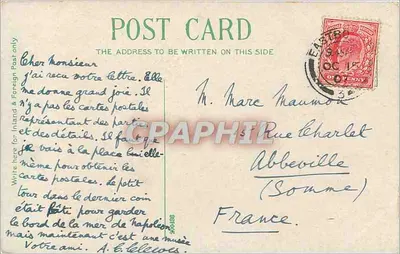 POST CARD
THE ADDRESS TO BE WRITTEN ON THIS SIDE.
Write here for Inland & Foreign Post only
Cher Monsieur
j'ai reçu votre lettre. Elle
me donne grand joie. Il
n'y a pas les cartes postales
représentant des parties
et des détails. Il faut que
je vais à la place lui-elle-
même pour obtenir les
cartes postales. Le petit
tour dans le dernier coin
était bâti pour garder
le bord de la mer de Napoleon
mais maintenant c'est une musée
Votre ami.
M. Marc Maumon
Rue Charlet
Abbeville
(Somme)
France.
EASTB
OC 15
07
PENNY
CRAPHIL